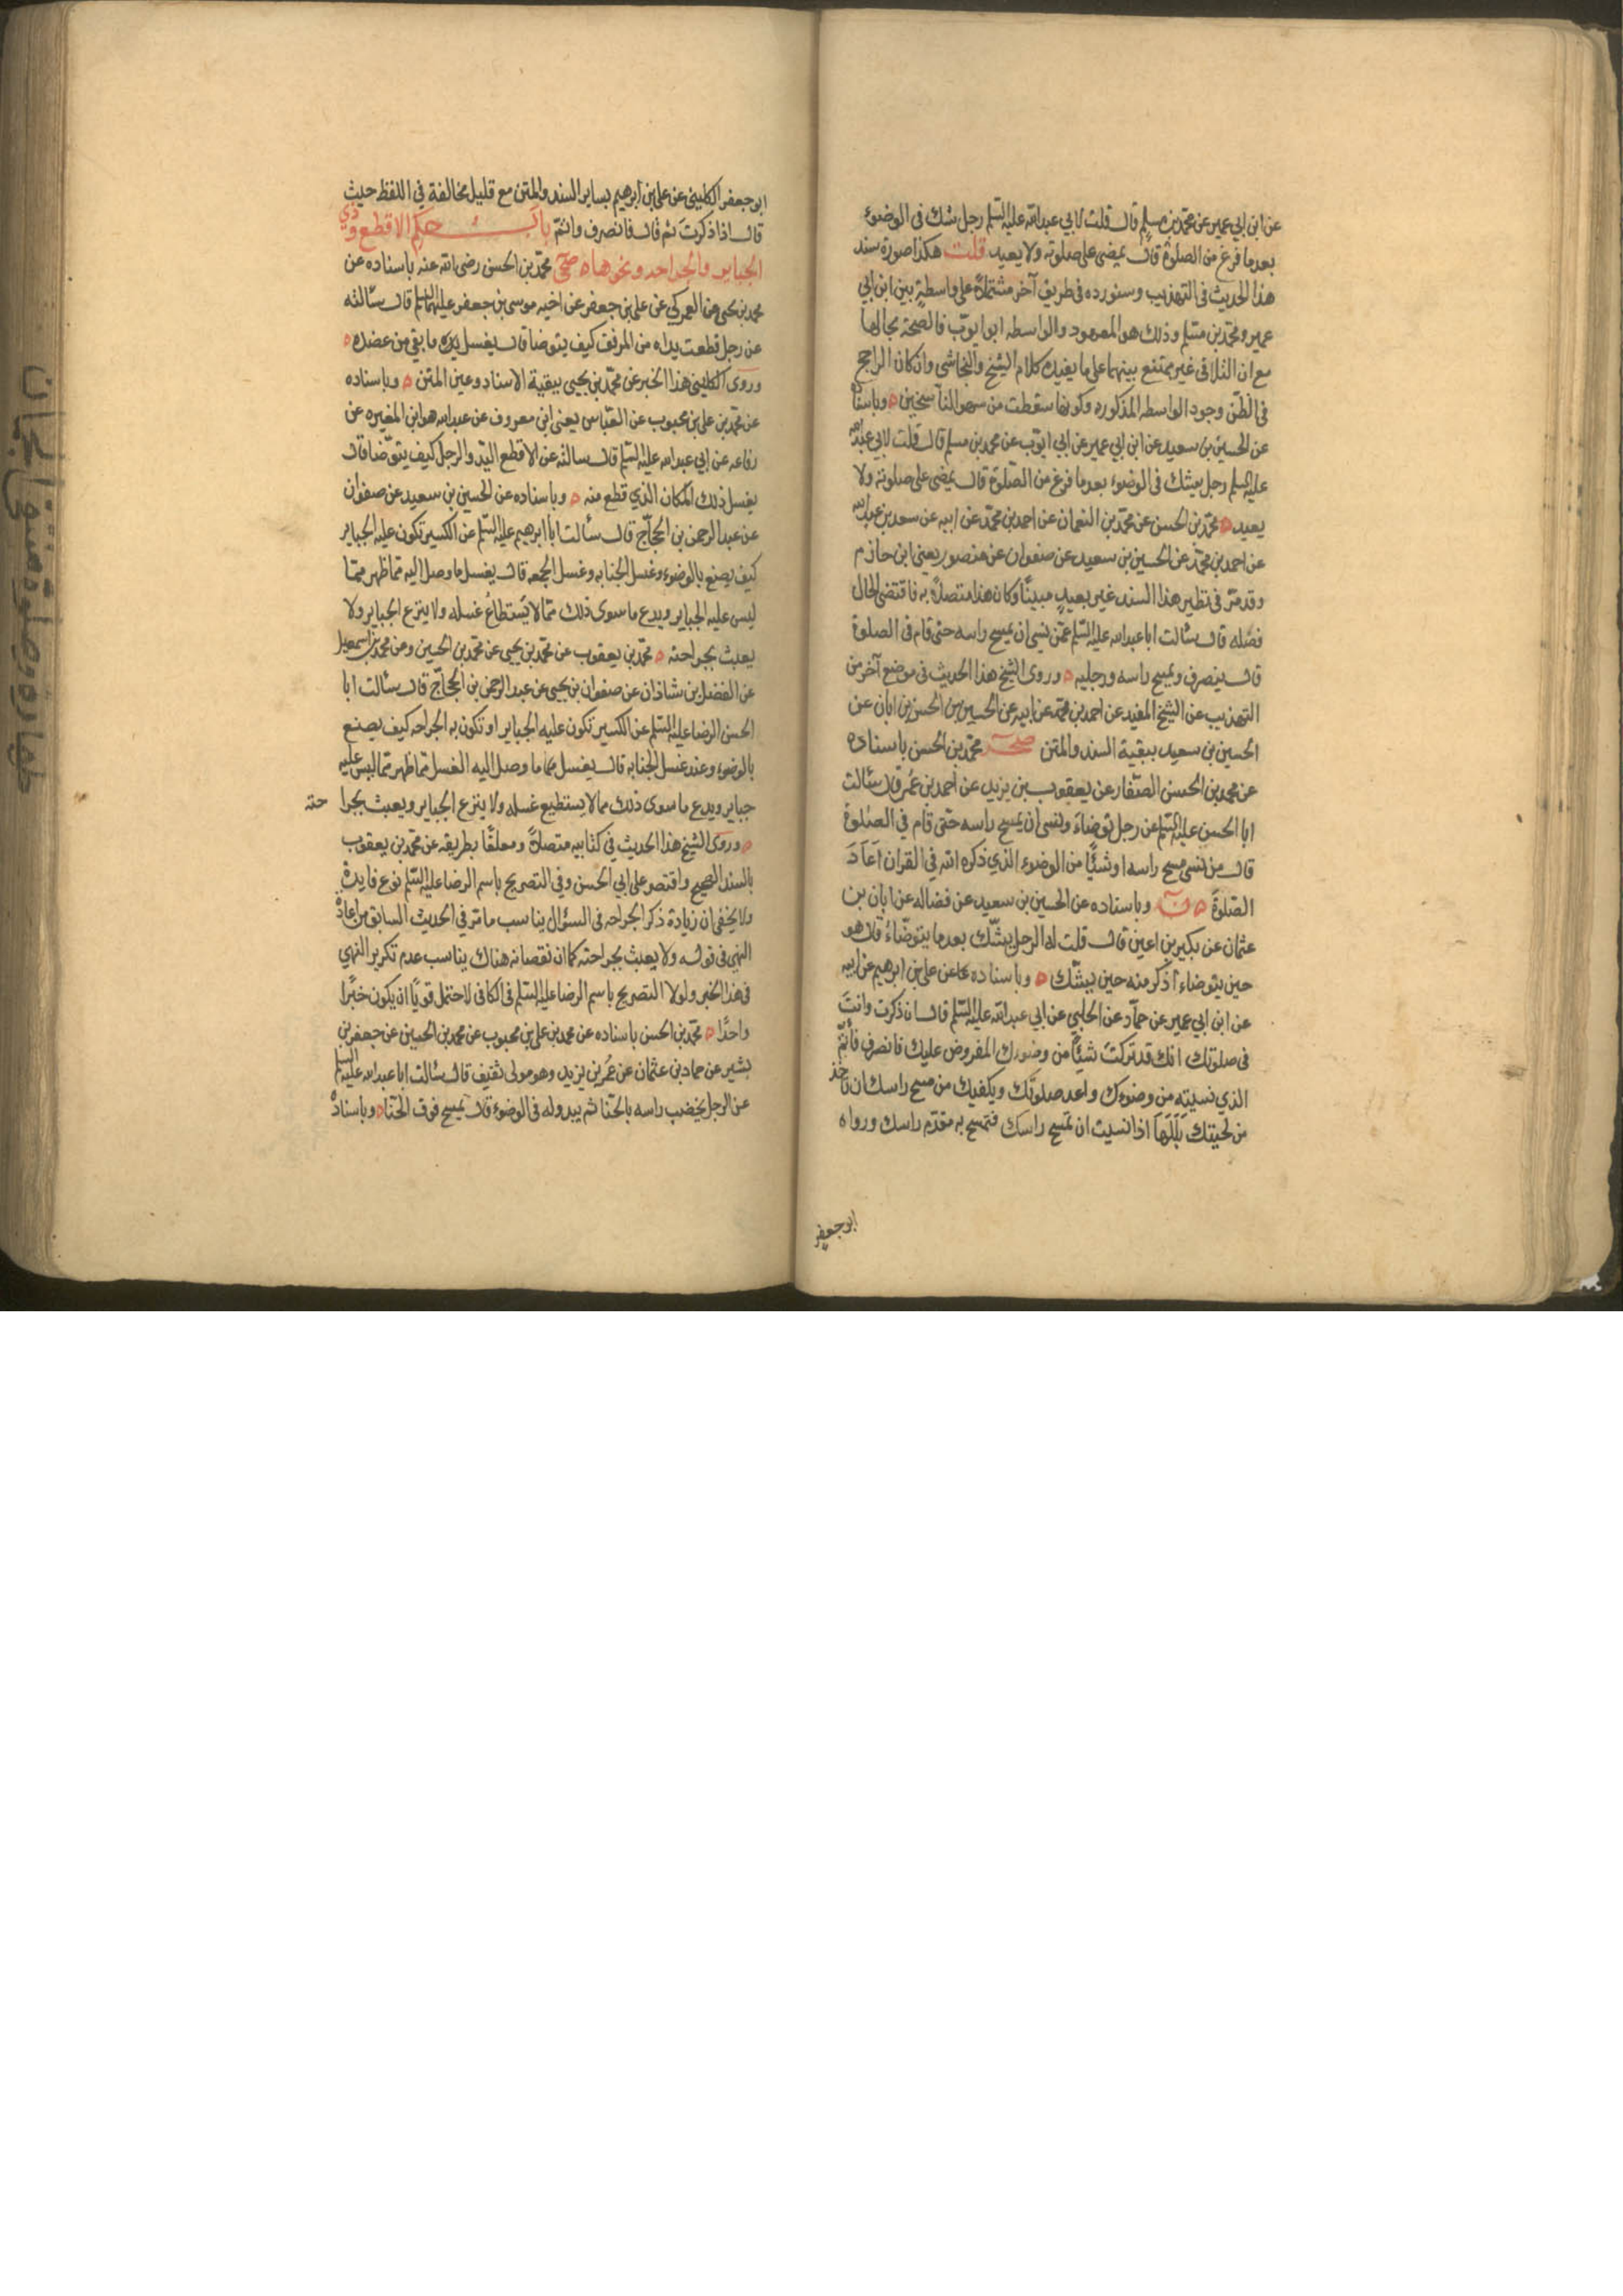 عن ابن ابي عمير عن محمد بن مسلم قال قلت لابي عبد الله عليه السلم رجل شك فى الوضوء
بعد ما فرغ من الصلوة قال يمضى على صلوته ولا يعيد قلت هكذا صورة سند
هذا الحديث فى التهذيب وسنورده فى طريق آخر مشتملا على واسطة بين ابن ابي
عمير ومحمد بن مسلم وذلك هو المعهود والواسطه ابو ايوب فالصحة بحالها
مع ان التلاقى غير ممتنع بينهما على ما يفيده كلام الشيخ والنجاشي وان كان الراجح
فى الظن وجود الواسطه المذكوره وكونها سقطت من سهو الناسخين ه وباسناده
عن الحسين بن سعيد عن ابن ابي عمير عن ابي ايوب عن محمد بن مسلم قال قلت لابي عبد الله
عليه السلم رجل يشك فى الوضوء بعد ما فرغ من الصلوة قال يمضى على صلوته ولا
يعيد ه محمد بن الحسن عن محمد بن النعمان عن احمد بن محمد عن ابيه عن سعد بن عبد الله
عن احمد بن محمد عن الحسين بن سعيد عن صفوان عن منصور يعنى ابن حازم
وقد مر فى نظير هذا السند غير بعيد مبينا وكان هذا متصلا به فاقتضى الحال
فصله قال سألت ابا عبد الله عليه السلم عمن نسي ان يمسح راسه حتى قام فى الصلوة
قال ينصرف ويمسح راسه ورجليه ه وروى الشيخ هذا الحديث فى موضع آخر من
التهذيب عن الشيخ المفيد عن احمد بن محمد عن ابيه عن الحسين بن الحسن بن ابان عن
الحسين بن سعيد ببقية السند والمتن صحر محمد بن الحسن باسناده
عن محمد بن الحسن الصفار عن يعقوب بن يزيد عن احمد بن عمر قال سألت
ابا الحسن عليه السلم عن رجل توضاء ونسى ان يمسح راسه حتى قام في الصلوة
قال من نسى مسح راسه او شيئا من الوضوء الذي ذكره الله في القران اعاد
الصلوة ه ن وباسناده عن الحسين بن سعيد عن فضاله عن ابان بن
عثمان عن بكير بن اعين قال قلت له الرجل يشك بعد ما يتوضاء قال هو
حين يتوضاء اذكر منه حين يشك ه وباسناده عن على بن ابرهيم عن ابيه
عن ابن ابي عمير عن حماد عن الحلبي عن ابي عبد الله عليه السلم قال ان ذكرت وانت
فى صلوتك انك قد تركت شيئا من وضوئك المفروض عليك فانصرف فأتم
الذي نسيته من وضوئك واعد صلوتك ويكفيك من مسح راسك ان تاخذ
من لحيتك بللها اذا نسيت ان تمسح راسك فتمسح به مقدم راسك ورواه
ابو جعفر
ابو جعفر الكلينى عن على بن ابرهيم بساير السند والمتن مع قليل مخالفة في اللفظ حيث
قال اذا ذكرت ثم قال فانصرف واتم باب حكم الاقطع وذي
الجباير والجراحه ونحوها ه صحى محمد بن الحسن رضى الله عنه باسناده عن
محمد بن يحيى عن العمركي عن على بن جعفر عن اخيه موسى بن جعفر عليهما السلم قال سألته
عن رجل قطعت يداه من المرفق كيف يتوضا قال يغسل ما بقي من عضده ه
وروى الكلينى هذا الخبر عن محمد بن يحيى ببقية الاسناد وعين المتن ه وباسناده
عن محمد بن على بن محبوب عن العباس يعنى ابن معروف عن عبد الله هو ابن المغيره عن
رفاعه عن ابي عبد الله عليه السلم قال سالته عن الاقطع اليد والرجل كيف يتوضا قال
يغسل ذلك المكان الذي قطع منه ه وباسناده عن الحسين بن سعيد عن صفوان
عن عبد الرحمن بن الحجاج قال سألت ابا ابرهيم عليه السلم عن الكسير تكون عليه الجباير
كيف يصنع بالوضوء وغسل الجنابه وغسل الجمعه قال يغسل ما وصل اليه مما ظهر مما
ليس عليه الجباير ويدع ما سوى ذلك مما لا يستطاع غسله ولا ينزع الجباير ولا
يعبث بجراحته ه محمد بن يعقوب عن محمد بن يحيى عن محمد بن الحسين وعن محمد بن اسمعيل
عن الفضل بن شاذان عن صفوان بن يحيى عن عبد الرحمن بن الحجاج قال سألت ابا
الحسن الرضا عليه السلم عن الكسير تكون عليه الجباير او تكون به الجراحه كيف يصنع
بالوضوء وعند غسل الجنابه قال يغسل ما وصل اليه الغسل مما ظهر مما ليس عليه
جباير ويدع ما سوى ذلك مما لا يستطيع غسله ولا ينزع الجباير ويعبث بجرا حته
ه وروى الشيخ هذا الحديث في كتابيه متصلا ومعلقا بطريقه عن محمد بن يعقوب
بالسند الصحيح واقتصر على ابي الحسن وفي التصريح باسم الرضا عليه السلم نوع فايدة
ولا يخفى ان زيادة ذكر الجراحه فى السؤال يناسب ما مر في الحديث السابق من اعادة
النهي فى قوله ولا يعبث بجراحته كما ان نقصانه هناك يناسب عدم تكرير النهي
فى هذا الخبر ولولا التصريح باسم الرضا عليه السلم فى الكافى لاحتمل قويا ان يكون خبرا
واحدا ه محمد بن الحسن باسناده عن محمد بن على بن محبوب عن محمد بن الحسين عن جعفر بن
بشير عن حماد بن عثمان عن عمر بن يزيد وهو مولى ثقيف قال سألت ابا عبد الله عليه السلم
عن الرجل يخضب راسه بالحنا ثم يبدو له فى الوضوء قال يمسح فوق الحنا ه وباسناده